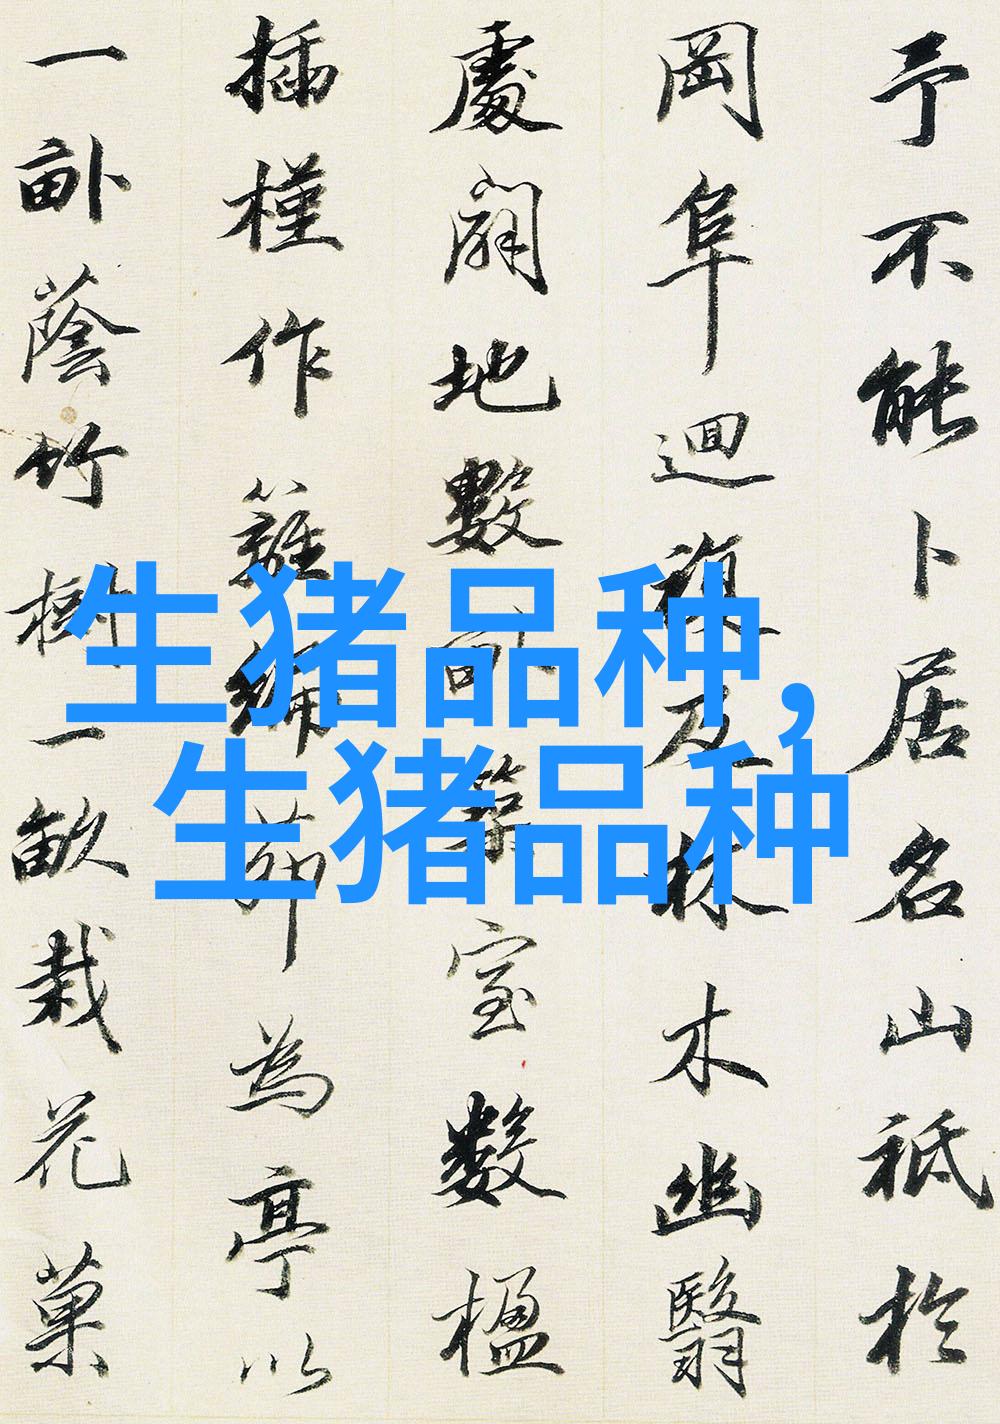 予不能卜居名山祗於
岡阜迴複及林木幽翳
處闢地數畝築室數楹
插槿作籬編茆為亭以
一畝蔭竹樹一畝栽花菓
生猪品种，
生猪品种